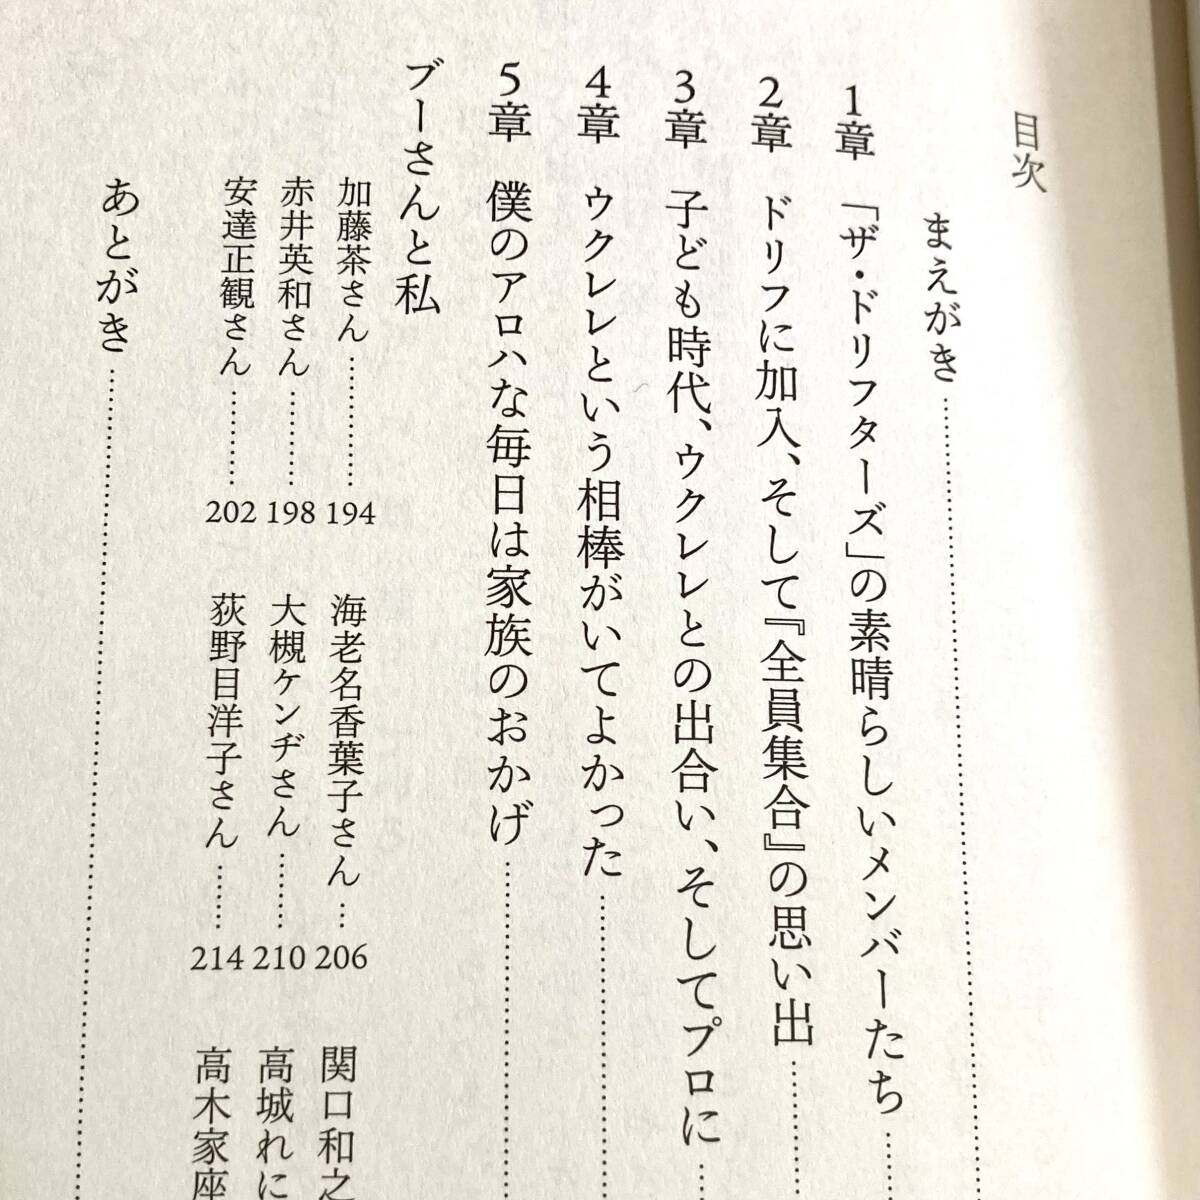 目次
まえがき
1章 「ザ・ドリフターズ」の素晴らしいメンバーたち
2章 ドリフに加入、そして『全員集合』の思い出
3章 子ども時代、ウクレレとの出合い、そしてプロに
4章 ウクレレという相棒がいてよかった
5章 僕のアロハな毎日は家族のおかげ
ブーさんと私
加藤茶さん 194 海老名香葉子さん 206 関口和之
赤井英和さん 198 大槻ケンヂさん 210 高城れに
安達正観さん 202 荻野目洋子さん 214 高木家座
あとがき